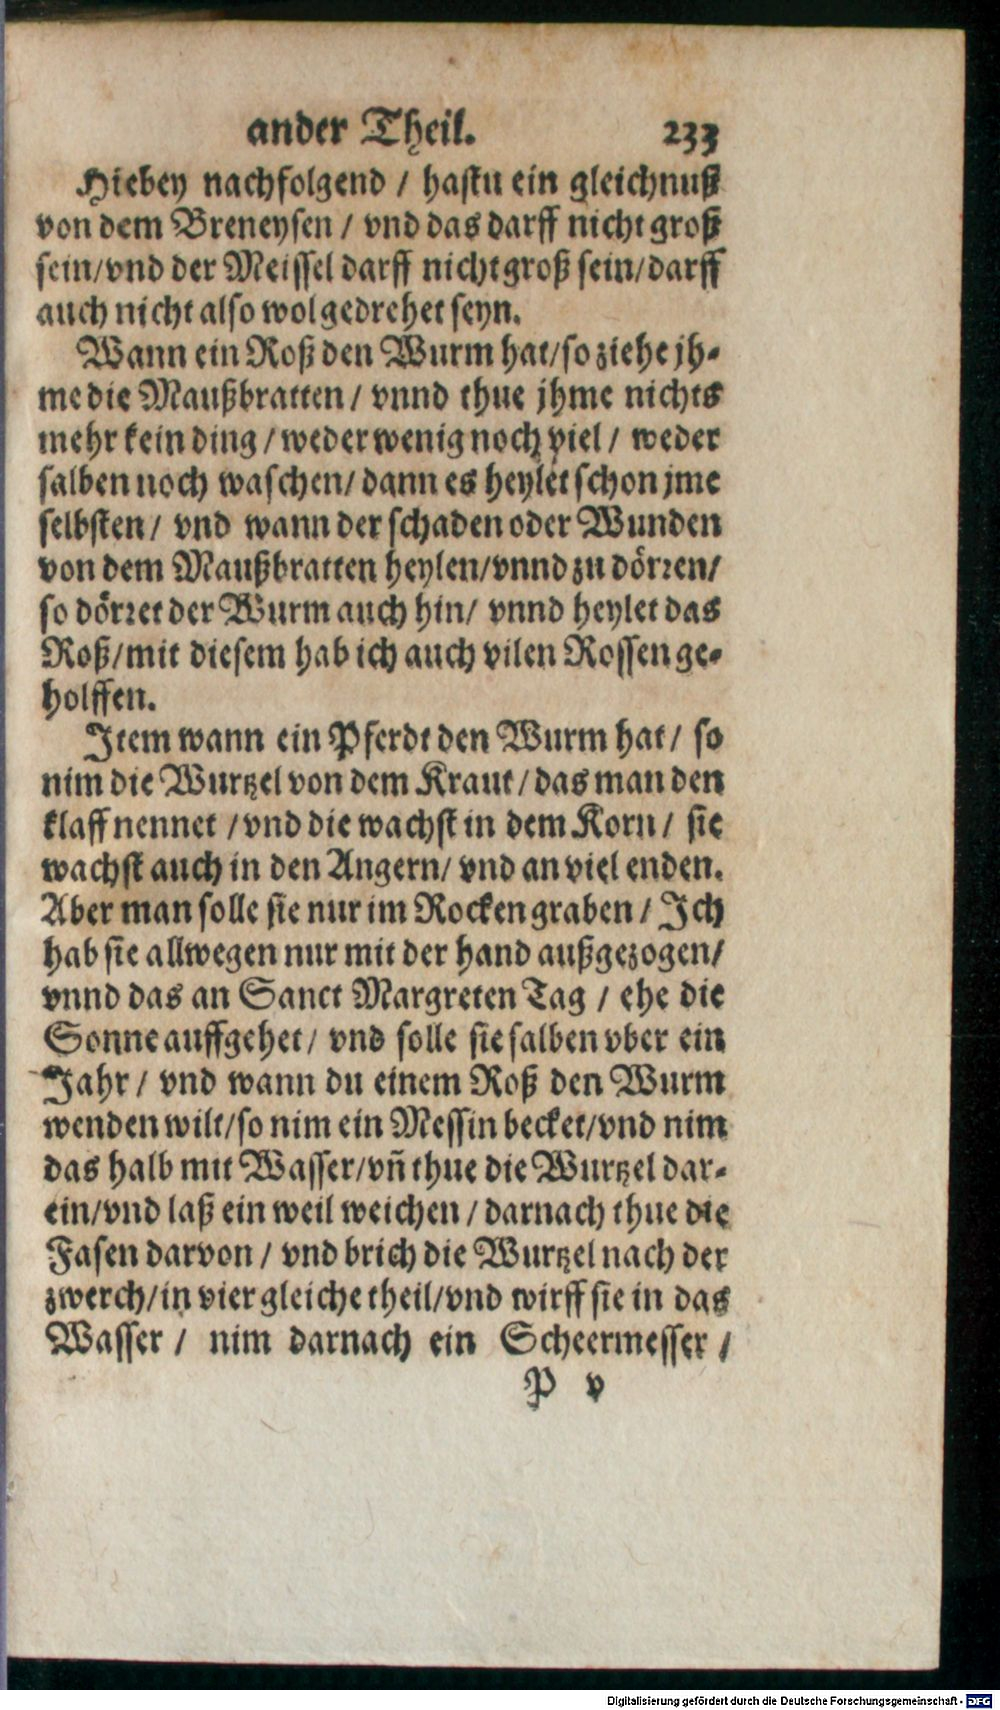 ander Theil. 233
Hiebey nachfolgend / hastu ein gleichnuß
von dem Breneysen / vnd das darff nicht groß
sein/vnd der Meissel darff nicht groß sein/darff
auch nicht also wol gedrehet seyn.
Wann ein Roß den Wurm hat/so ziehe jh-
me die Maußbratten / vnnd thue jhme nichts
mehr kein ding / weder wenig noch viel / weder
salben noch waschen/ dann es heylet schon jme
selbsten / vnd wann der schaden oder Wunden
von dem Maußbratten heylen/vnnd zu dörren/
so dörret der Wurm auch hin/ vnnd heylet das
Roß/mit diesem hab ich auch vilen Rossen ge-
holffen.
Item wann ein Pferdt den Wurm hat / so
nim die Wurtzel von dem Kraut / das man den
klaff nennet / vnd die wachst in dem Korn / sie
wachst auch in den Angern/ vnd an viel enden.
Aber man solle sie nur im Rocken graben / Ich
hab sie allwegen nur mit der hand außgezogen/
vnnd das an Sanct Margreten Tag / ehe die
Sonne auffgehet / vnd solle sie salben vber ein
Jahr / vnd wann du einem Roß den Wurm
wenden wilt/so nim ein Messin becket/vnd nim
das halb mit Wasser/vñ thue die Wurtzel dar-
ein/vnd laß ein weil weichen / darnach thue die
Fasen darvon / vnd brich die Wurtzel nach der
zwerch/in vier gleiche theil/vnd wirff sie in das
Wasser / nim darnach ein Scheermesser /
P v
Digitalisierung gefördert durch die Deutsche Forschungsgemeinschaft - DFG